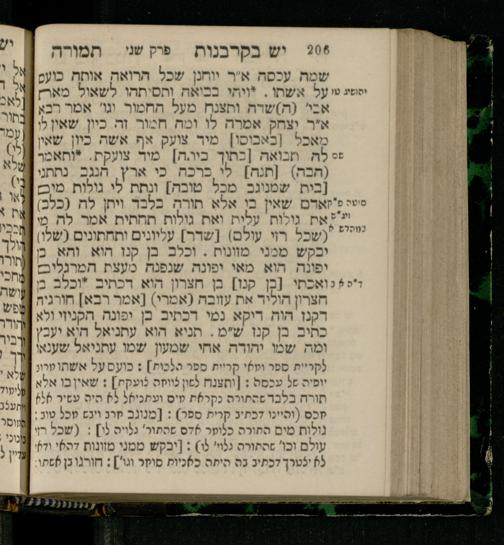 206 יש בקרבנות פרק שני תמורה
שמה עכסה א״ר יוחנן שכל הרואה אותה כועס
על אשתו . *ויהי בבואה ותסיתהו לשאול מאת יהושע טו
אבי׳ (ה)שדה ותצנח מעל החמור וגו׳ אמר רבא
א״ר יצחק אמרה לו ומה חמור זה כיון שאין לו
מאכל [באבוסו] מיד צועק אף אשה כיון שאין
לה תבואה [בתוך ביתה] מיד צועקת. *ותאמר שם
(הבה) [תנה] לי ברכה כי ארץ הנגב נתתני
[בית שמנוגב מכל טובה] ונתת לי גולות מים
אדם שאין בו אלא תורה בלבד ויתן לה (כלב)
את גולות עלית ואת גולות תחתית אמר לה מי
(שכל רזי עולם) [שדר] עליונים ותחתונים (שלו)
יבקש ממני מזונות . וכלב בן קנז הוא והא בן
יפונה הוא מאי יפונה שנפנה מעצת המרגלים
ואכתי [בן קנז] בן חצרון הוא דכתיב *וכלב בן ד״ה א ב
חצרון הוליד את עזובה (אמרי) [אמר רבא] חורגיה
דקנז הוה דיקא נמי דכתיב בן יפונה הקניזי ולא
כתיב בן קנז ש״מ . תניא הוא עתניאל הוא יעבץ
ומה שמו יהודה אחי שמעון שמו עתניאל שענאו
לקריית ספר ומאי קריית ספר הלכות] : כועס על אשתו
יופיה של עכסה : [ותצנח לשון
תורה בלבד
חכם (והיינו דכתיב קרית ספר) : [מנוגב חרב ויבש מכל טוב :
גולות מים התורה כלומר אדם שהתור׳ גלויה לו] : (שכל רזי
עולם וכו׳ שהתורה גלוי׳ לו) : [יבקש ממני מזונות
דכתיב בה היתה כאניות סוחר וגו׳] : חורגו בן אשתו :